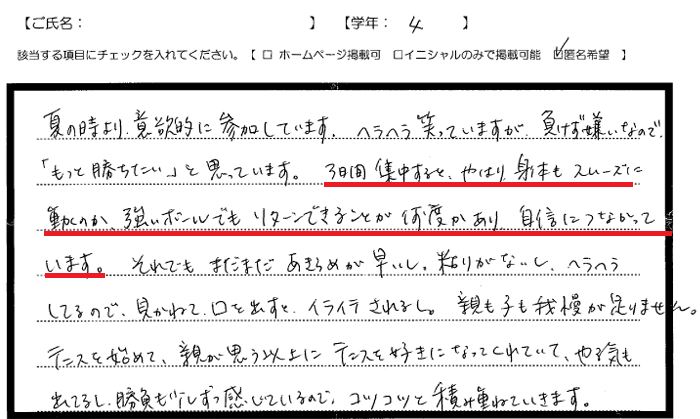 【ご氏名： 】 【学年： 4 】
該当する項目にチェックを入れてください。【 □ ホームページ掲載可 □イニシャルのみで掲載可能 ☑匿名希望 】
夏の時より、意欲的に参加しています。 ヘラヘラ笑っていますが、負けず嫌いなので、
「もっと勝ちたい」と思っています。 3日間集中すると、やはり身体もスムーズに
動くのか、強いボールでもリターンできることが何度かあり、自信につながって
います。 それでもまだまだあきらめが早いし、粘りがないし、ヘラヘラ
してるので、見かねて口を出すと、イライラされるし。 親も子も我慢が足りません。
テニスを始めて、親が思う以上にテニスを好きになってくれていて、やる気も
出てるし、勝負も少しずつ感じているので、コツコツと積み重ねていきます。